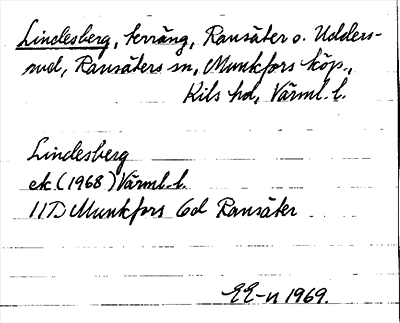 Lindesberg, terräng, Ransäter o. Udders-
rud, Ransäters sn, Munkfors köp.,
Kils hd, Värml. l.
Lindesberg
ek. (1968) Värml. l.
11D Munkfors 6d Ransäter
EE-n 1969.